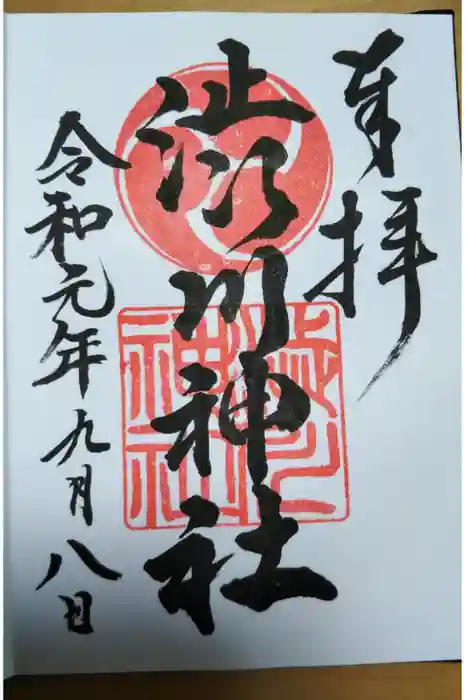 奉拝
渋川神社
令和元年九月八日